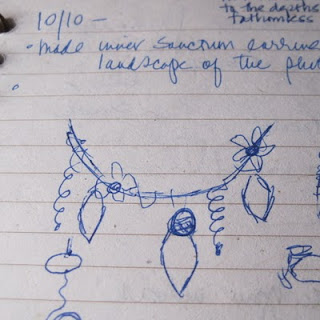 to the depths
fathomless
10/10 -
• made inner sanctum earrin
landscape of the